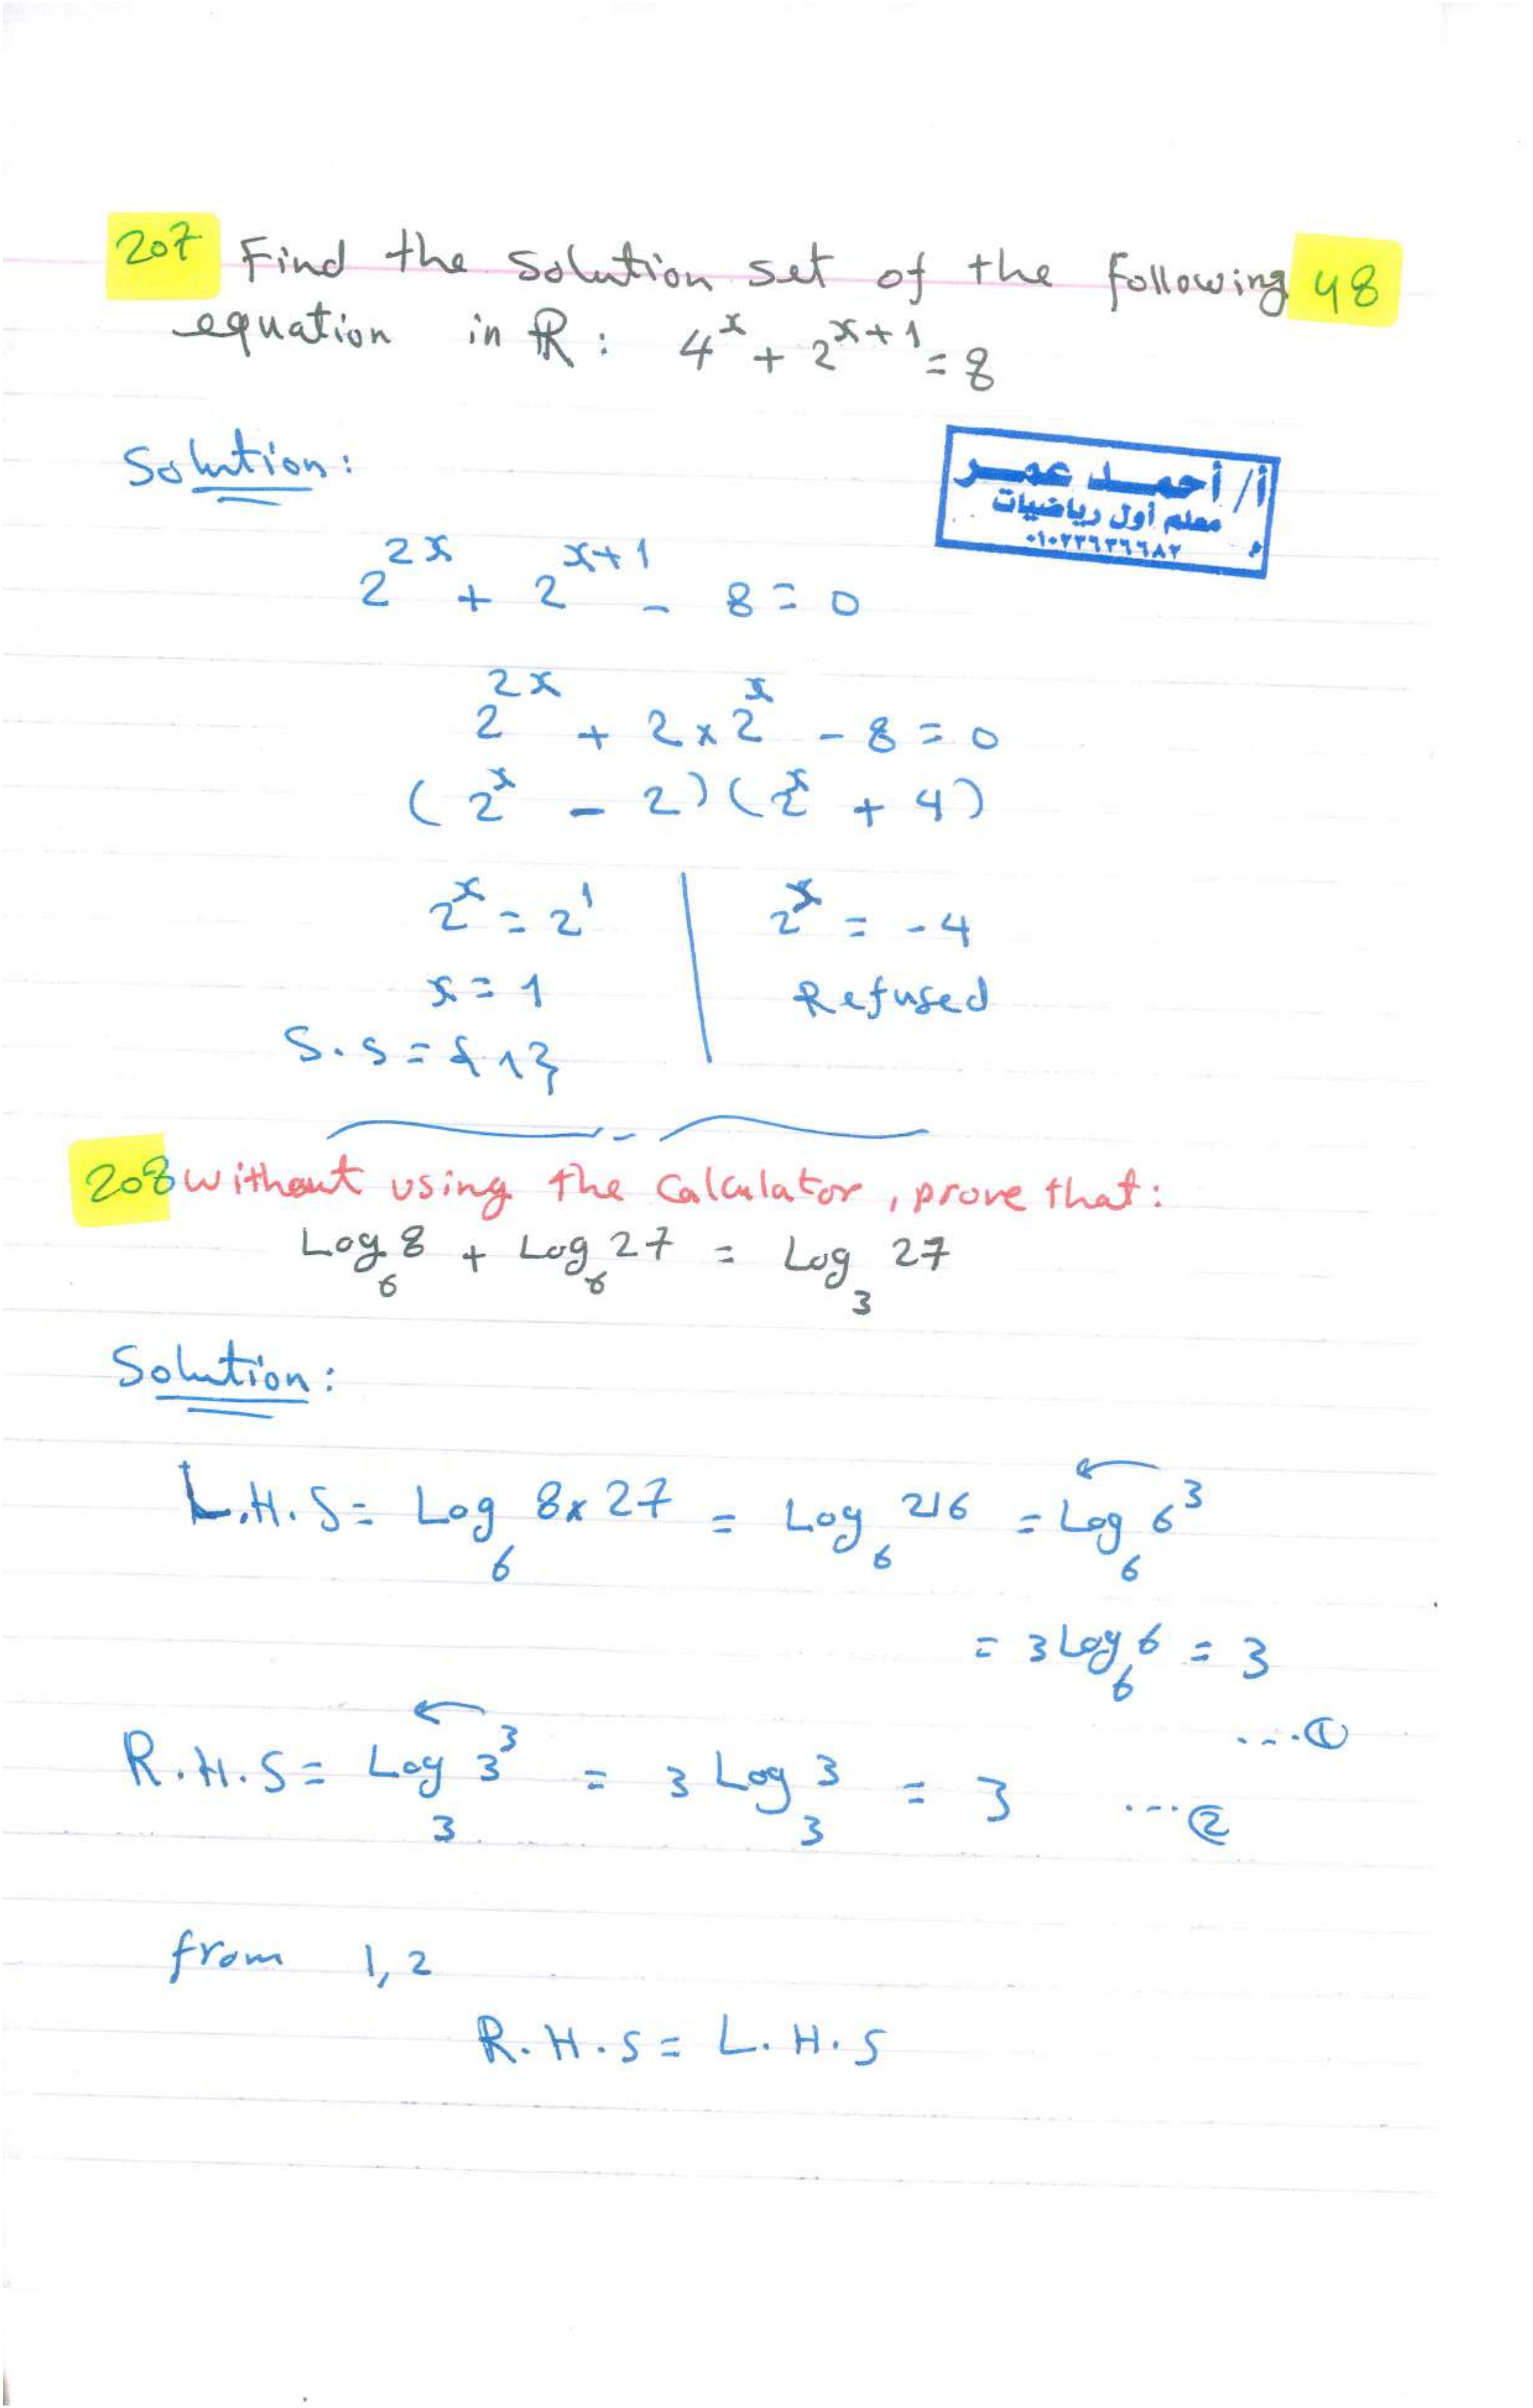 207 Find the solution set of the following 48
equation in ℝ: 4^x + 2^(x+1) = 8
Solution:
أ/ أحمد عمر
معلم أول رياضيات
2^(2x) + 2^(x+1) - 8 = 0
2^(2x) + 2 × 2^x - 8 = 0
(2^x - 2)(2^x + 4)
2^x = 2^1 | 2^x = -4
x = 1 | Refused
S.S = {1}
208 without using the calculator, prove that:
Log_6 8 + Log_6 27 = Log_3 27
Solution:
L.H.S = Log_6 8 × 27 = Log_6 216 = Log_6 6^3
= 3 Log_6 6 = 3
...①
R.H.S = Log_3 3^3 = 3 Log_3 3 = 3 ...②
from 1, 2
R.H.S = L.H.S